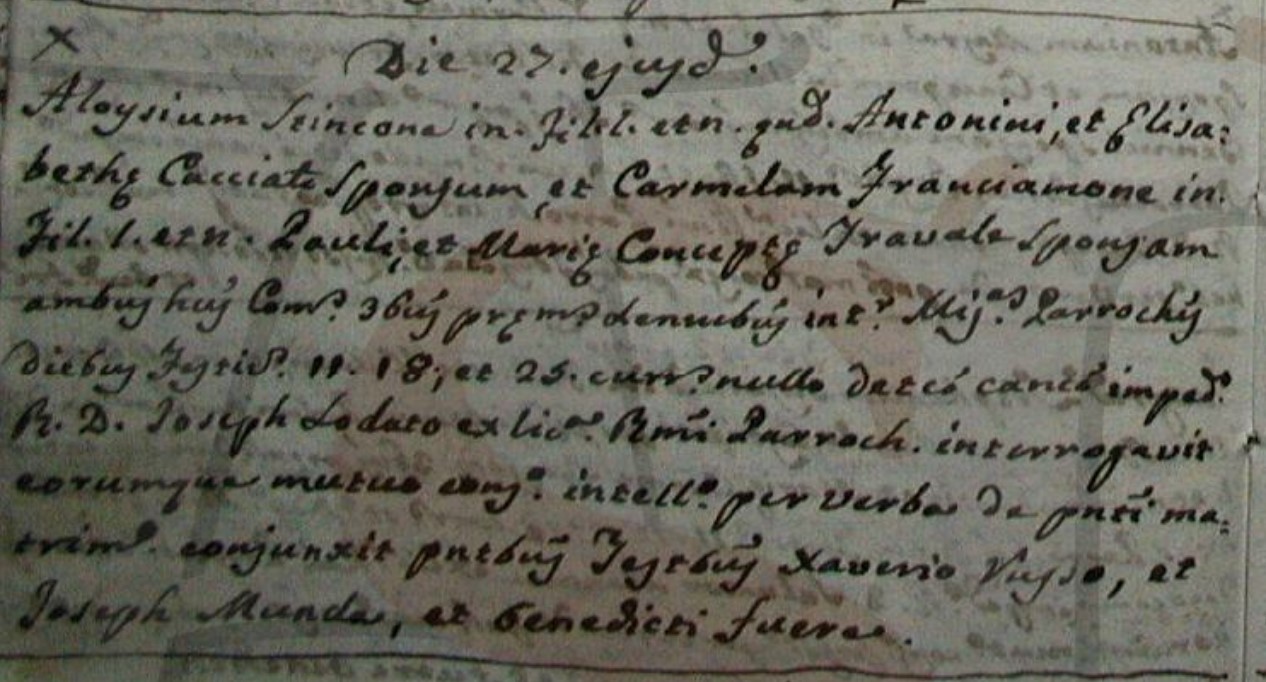 X
Die 27. ejusd.
Aloysium Scincone in. fil. l. et n. qnd. Antonini, et Elisa:
bethę Cacciato Sponsum et Carmelam Franciamone in.
fil. l. et n. Pauli, et Marię Conceptę Travale Sponsam
ambus hujus Com. 3bus pręm. denunc.bus int. Miss. Parrochis
diebus festiv. 11. 18; et 25. curr. nullo detcó canco imped.
R. D. Joseph Lodato ex lic.a Rmi Parroch. interrogavit
eorumque mutuo cons.o intell.o per verba de pnti ma:
trim. conjunxit pntbus Testbus Xaverio Russo, et
Joseph Munda, et benedicti fuere.